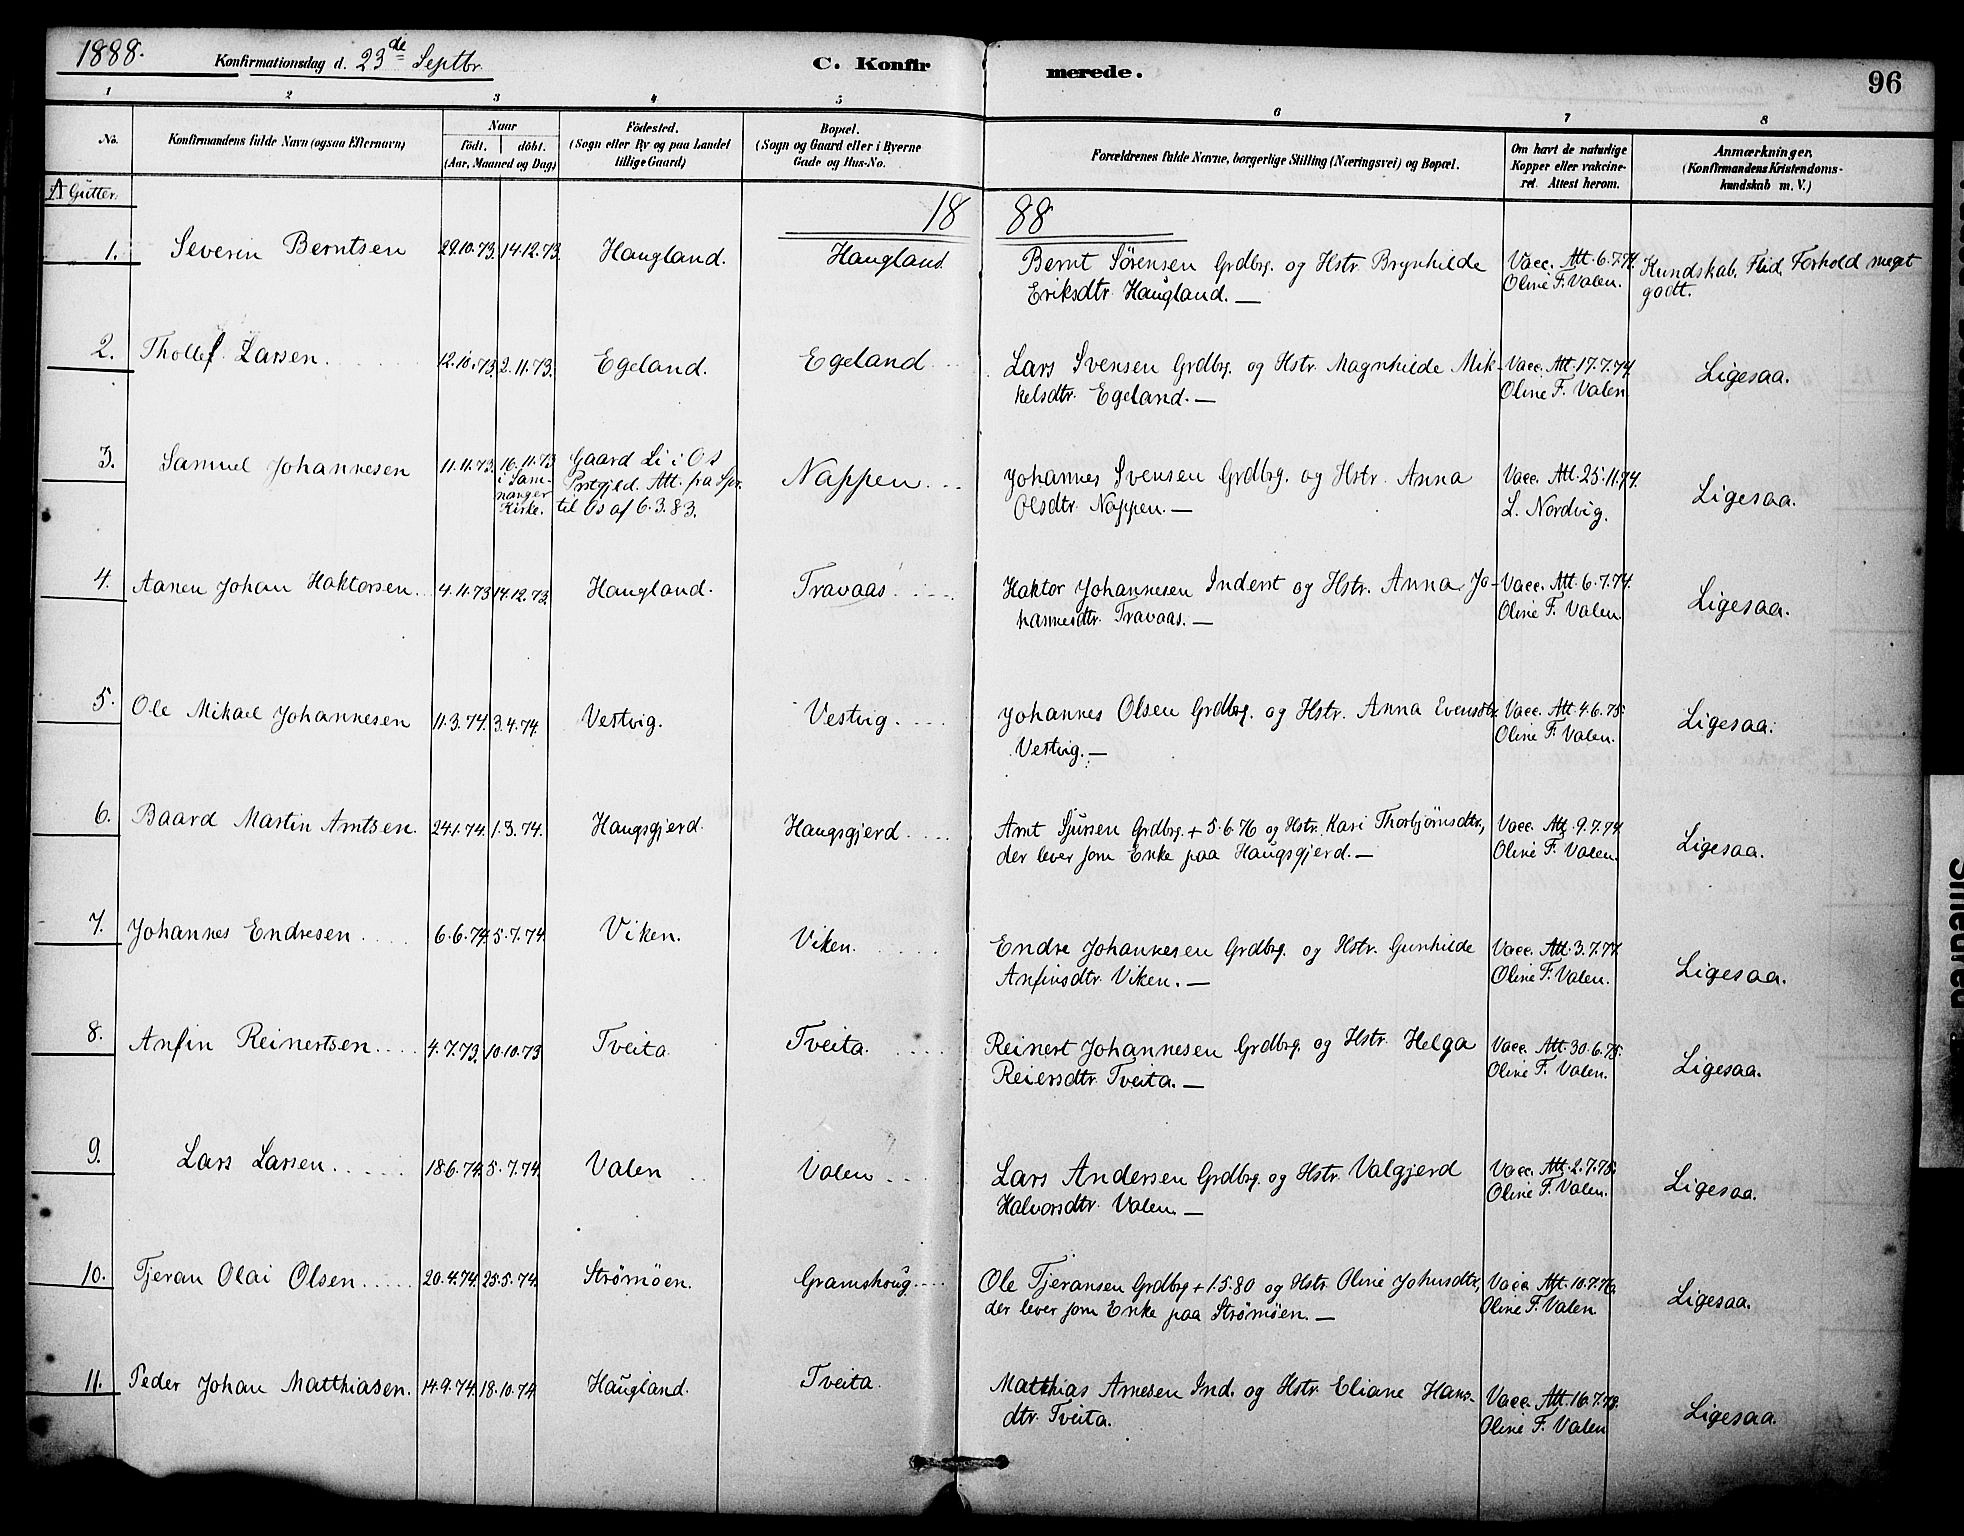 1888. Konfirmationsdag d. 23de Septbr. C. Konfirmerede. 96
1 2 3 4 5 6 7 8
No. Konfirmandens fulde Navn (ogsaa Efternavn) Naar födt. döbt. (Aar, Maaned og Dag) Födested. (Sogn eller By og paa Landet tillige Gaard) Bopæl. (Sogn og Gaard eller i Byerne Gade og Hus-No. Forældrenes fulde Navne, borgerlige Stilling (Næringsvei) og Bopæl. Om havt de naturlige Kopper eller vakcineret. Attest herom. Anmærkninger, (Konfirmandens Kristendomskundskab m. V.)
A Gutter.
18 88
1. Severin Berntsen 29.10.73. 14.12.73. Haugland. Haugland Bernt Sörensen Grdbrg. og Hstr. Brynhilde Vacc. Att. 6.7.74. Kundskab, Flid, Forhold meget
Eriksdtr. Haugland. — Oline F. Valen. godt.
2. Thollef Larsen 12.10.73. 2.11.73. Egeland. Egeland Lars Svensen Grdbrg. og Hstr. Magnhilde Mik- Vacc. Att. 17.7.74. Ligesaa.
kelsdtr. Egeland. — Oline F. Valen
3. Samuel Johannesen 11.11.73. 16.11.73 Gaard Li i Os Nappen Johannes Svensen Grdbrg. og Hstr. Anna Vacc. Att. 25.11.74. Ligesaa.
i Sam- Prstgjeld. Att. fra Spr. Olsdtr. Nappen. — L. Nordvig.
nanger til Os af 6.3.83.
Kirke.
4. Aanen Johan Haktorsen 4.11.73 14.12.73. Haugland. Travaas Haktor Johannesen Inderst og Hstr. Anna Jo- Vacc. Att. 6.7.74. Ligesaa.
hannesdtr. Travaas. — Oline F. Valen.
5. Ole Mikael Johannesen 11.3.74. 3.4.74. Vestvig. Vestvig. Johannes Olsen Grdbrg. og Hstr. Anna Evensdtr. Vacc. Att. 4.6.75. Ligesaa.
Vestvig. — Oline F. Valen.
6. Baard Martin Arntsen. 24.1.74. 1.3.74. Haugsgjerd. Haugsgjerd Arnt Sjursen Grdbrg. + 5.6.76 og Hstr. Kari Thorbjörnsdtr, Vacc. Att. 9.7.74. Ligesaa.
der lever som Enke paa Haugsgjerd. — Oline F. Valen.
7. Johannes Endresen 6.6.74. 5.7.74. Viken. Viken. Endre Johannesen Grdbrg. og Hstr. Gunhilde Vacc. Att. 3.7.77. Ligesaa.
Anfinsdtr. Viken. — Oline F. Valen.
8. Anfin Reinertsen 4.7.73. 10.10.73 Tveita Tveita. Reinert Johannesen Grdbrg. og Hstr. Helga Vacc. Att. 30.6.75. Ligesaa.
Reiersdtr. Tveita. — Oline F. Valen.
9. Lars Larsen 18.6.74. 5.7.74. Valen Valen Lars Andersen Grdbrg. og Hstr. Valgjerd Vacc. Att. 2.7.75. Ligesaa.
Halvorsdtr. Valen. — Oline F. Valen.
10. Tjeran Olai Olsen 20.4.74. 25.5.74. Strömöen. Gramshoug Ole Tjeransen Grdbrg + 1.5.80 og Hstr. Oline Johnsdtr, Vacc. Att. 10.7.76. Ligesaa.
der lever som Enke paa Strömöen. — Oline F. Valen.
11. Peder Johan Matthiasen. 14.9.74. 18.10.74 Haugland. Tveita. Matthias Arnesen Ind. og Hstr. Eliane Hans- Vacc. Att. 16.7.78. Ligesaa.
dtr. Tveita. Oline F. Valen